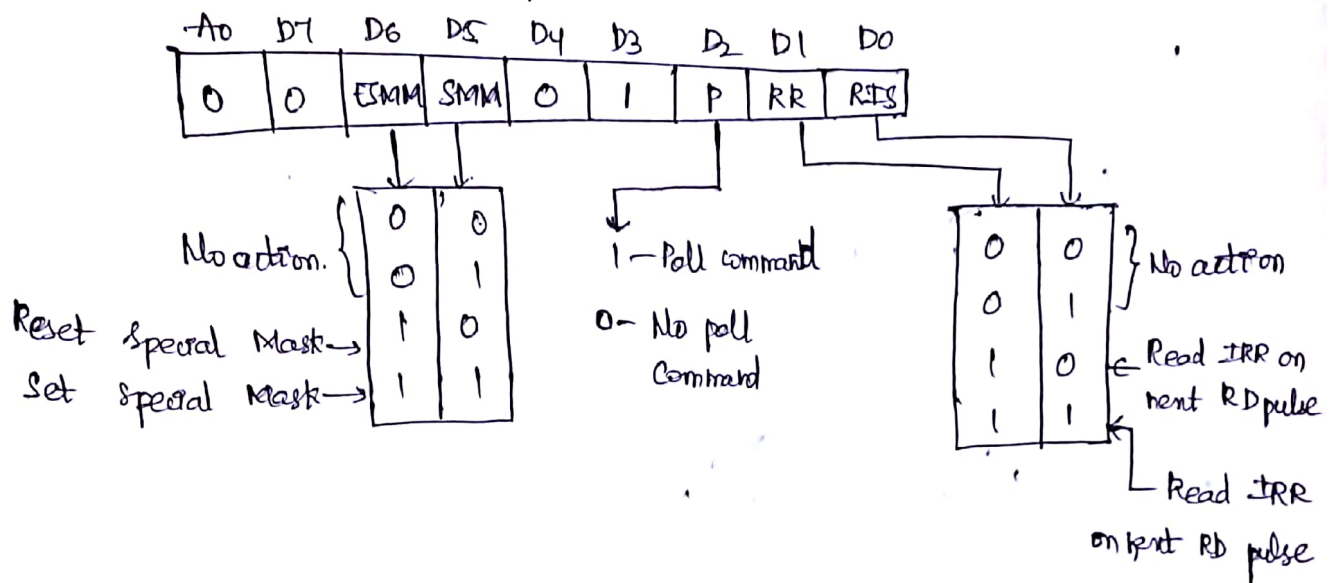 A0 D7 D6 D5 D4 D3 D2 D1 D0
0 0 ESMM SMM 0 1 P RR RIS
No action.
0 0
0 1
Reset Special Mask→ 1 0
Set Special Mask→ 1 1
1 – Poll command
0 – No poll
Command
0 0
0 1
No action
1 0
Read IRR on
next RD pulse
1 1
Read IRR
on next RD pulse